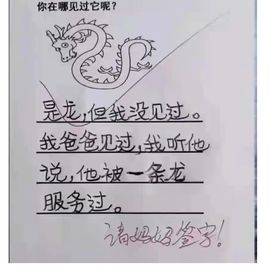 你在哪见过它呢?
是龙,但我没见过。
我爸爸见过,我听他
说,他被一条龙
服务过。
请妈妈签字!